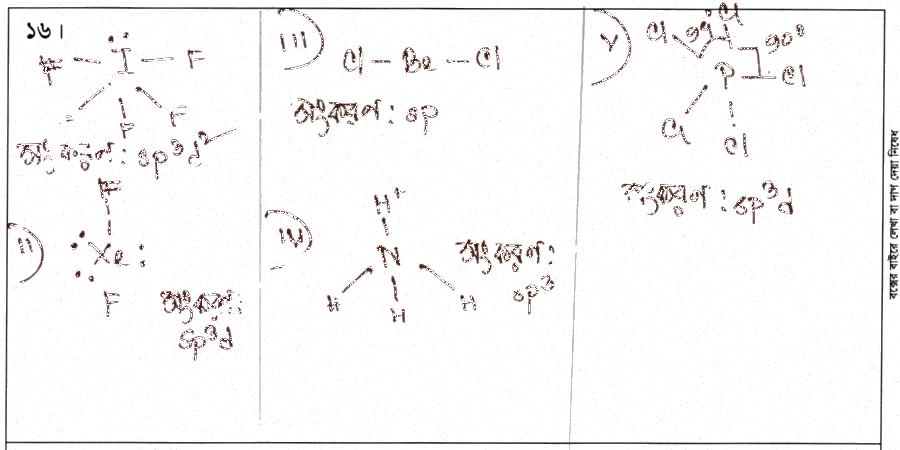 ১৬।
F — I — F
F F F
সংকরণ : sp³d²
II)
F
Xe
F
সংকরণ:
sp³d
III)
Cl — Be — Cl
সংকরণ : sp
IV)
H⁺
N
H H H
সংকরণ:
sp³
V)
Cl 90° Cl
90°
P Cl
Cl Cl
সংকরণ : sp³d
বক্সের বাইরে লেখা বা দাগ দেয়া নিষেধ